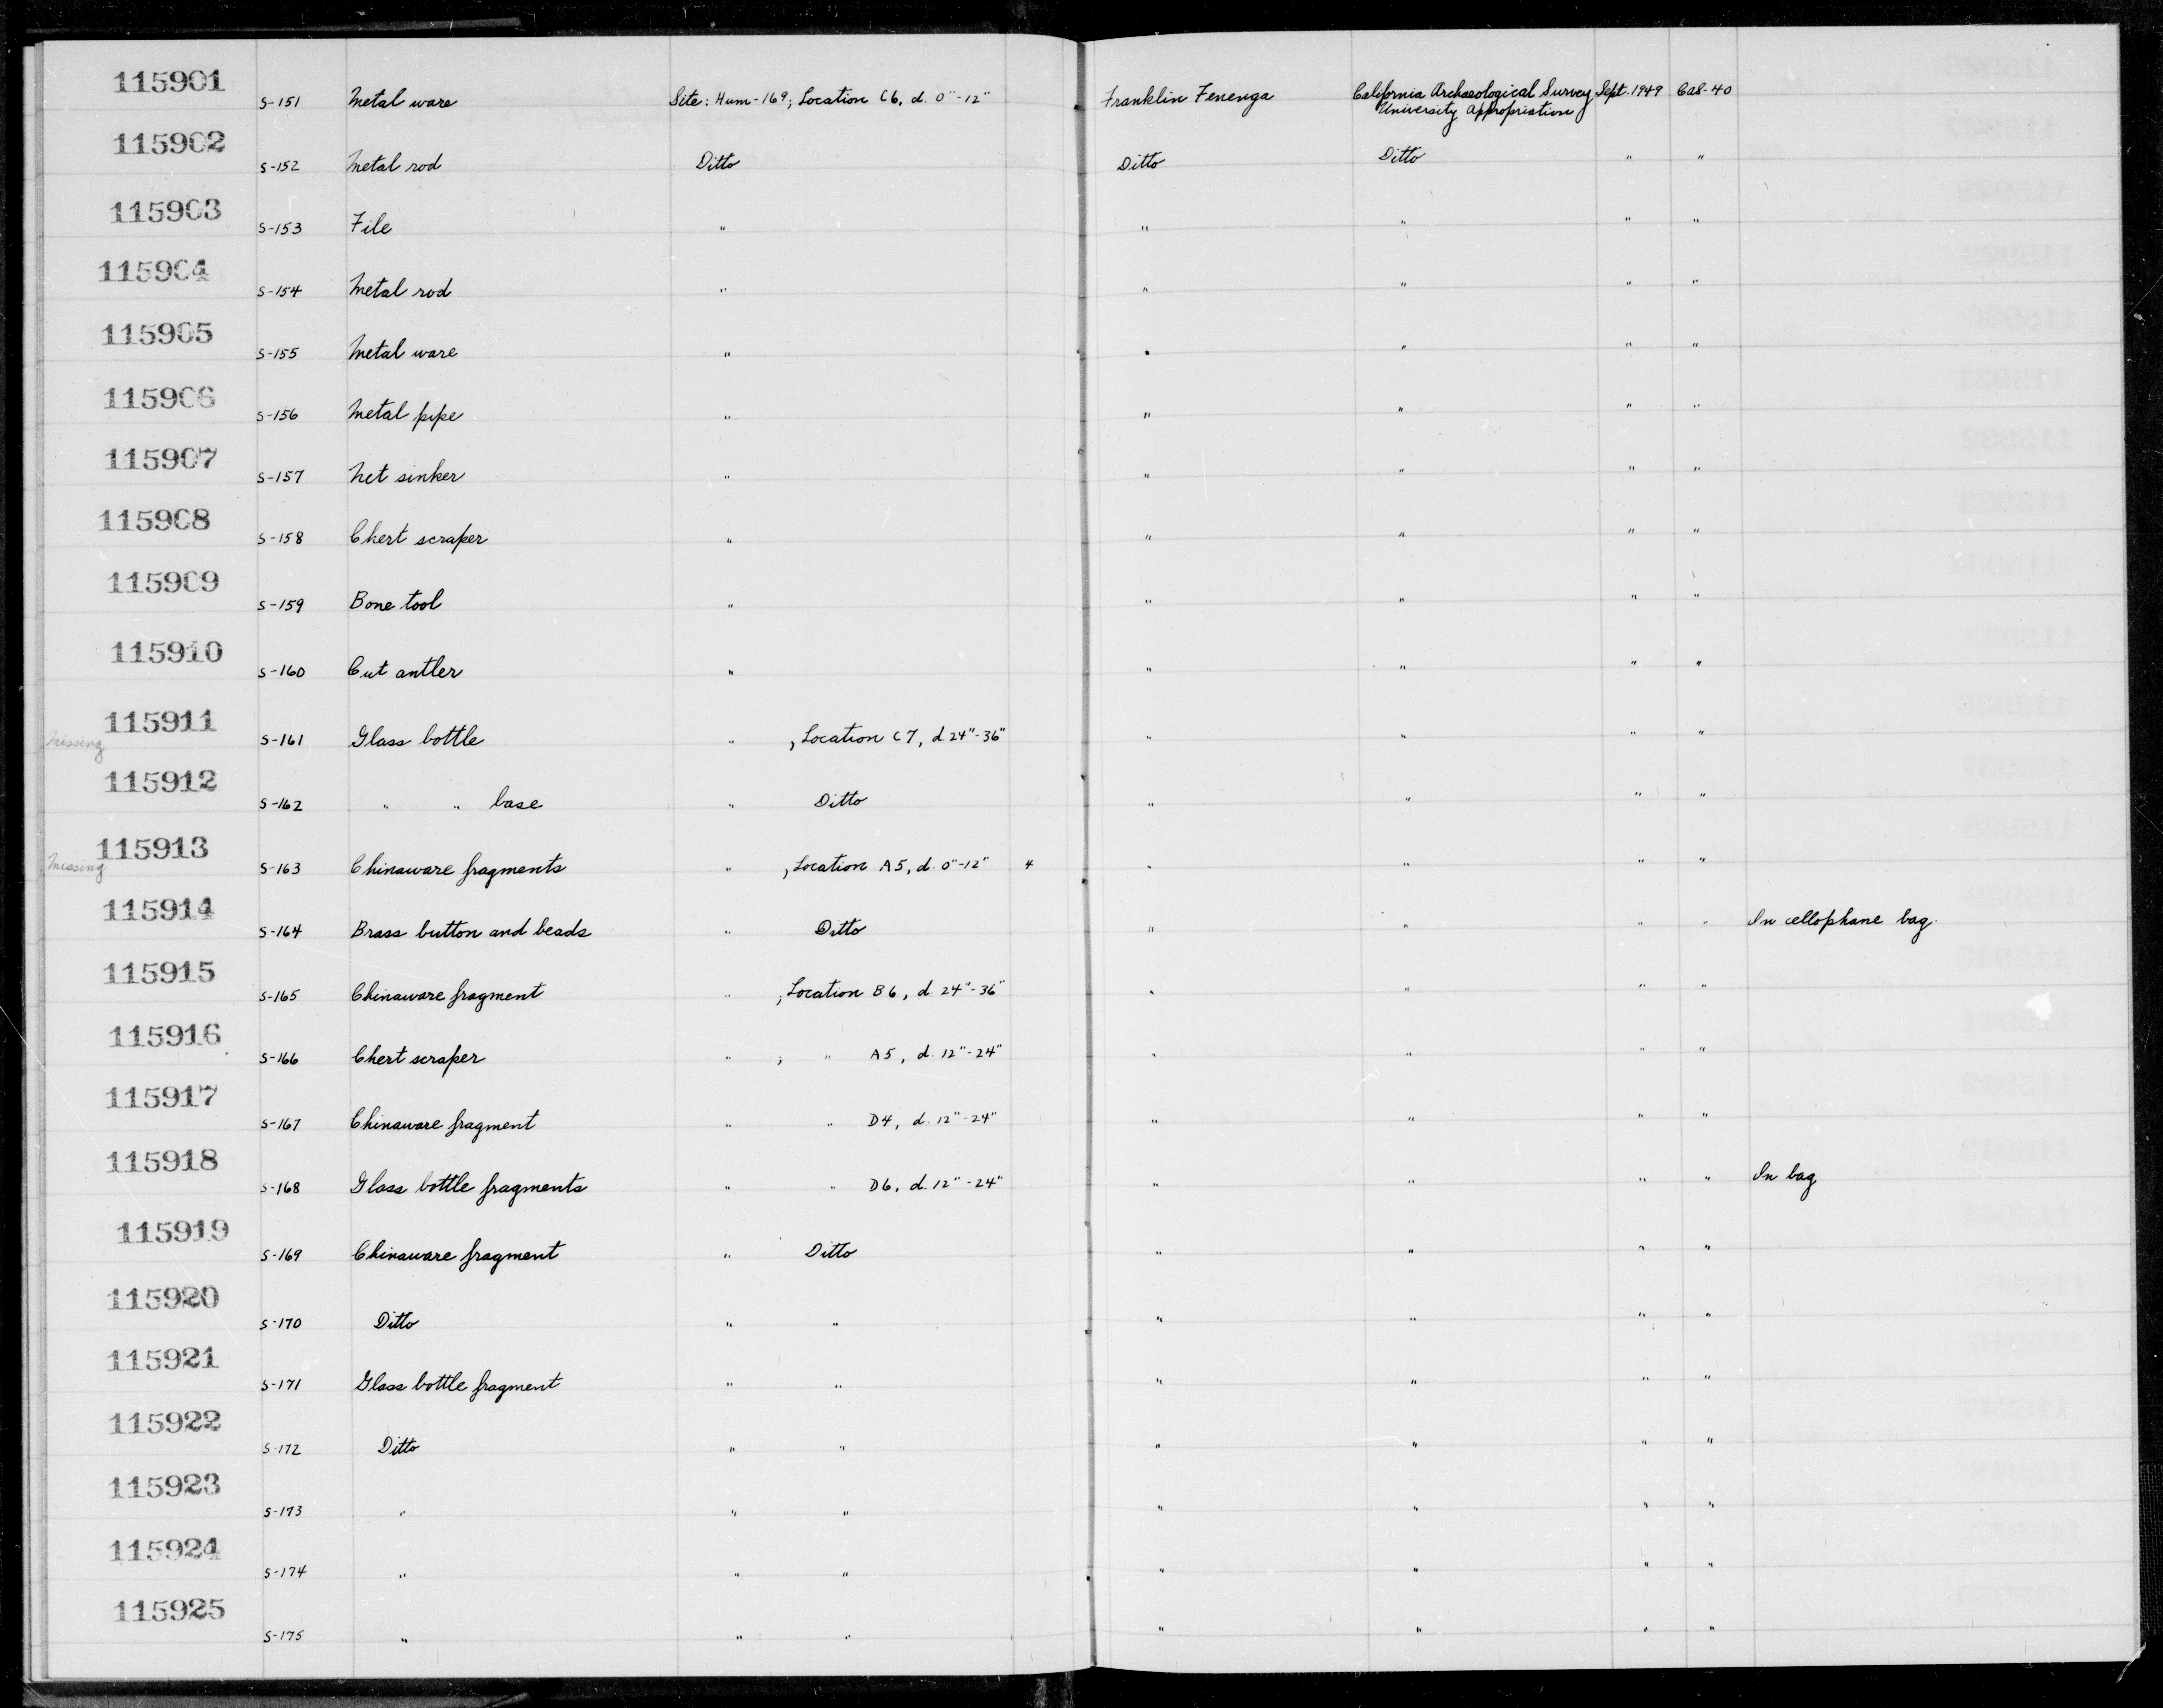 115901 S-151 Metal ware Site: Hum-169; Location C6, d. 0"-12" Franklin Fenenga California Archaeological Survey Sept. 1949 CaS-40
University Appropriation
115902 S-152 Metal rod Ditto Ditto Ditto " "
115903 S-153 File " " " " "
115904 S-154 Metal rod " " " " "
115905 S-155 Metal ware " " " " "
115906 S-156 Metal pipe " " " " "
115907 S-157 Net sinker " " " " "
115908 S-158 Chert scraper " " " " "
115909 S-159 Bone tool " " " " "
115910 S-160 Cut antler " " " " "
Missing 115911 S-161 Glass bottle " , Location C7, d 24"-36" " " " "
115912 S-162 " " base " Ditto " " " "
Missing 115913 S-163 Chinaware fragments " , Location A5, d. 0"-12" 4 " " " "
115914 S-164 Brass button and beads " Ditto " " " " In cellophane bag.
115915 S-165 Chinaware fragment " ; Location B6, d. 24"-36" " " " "
115916 S-166 Chert scraper " ; " A5, d. 12"-24" " " " "
115917 S-167 Chinaware fragment " " D4, d. 12"-24" " " " "
115918 S-168 Glass bottle fragments " " D6, d. 12"-24" " " " " In bag
115919 S-169 Chinaware fragment " Ditto " " " "
115920 S-170 Ditto " " " " " "
115921 S-171 Glass bottle fragment " " " " " "
115922 S-172 Ditto " " " " " "
115923 S-173 " " " " " " "
115924 S-174 " " " " " " "
115925 S-175 " " " " " " "